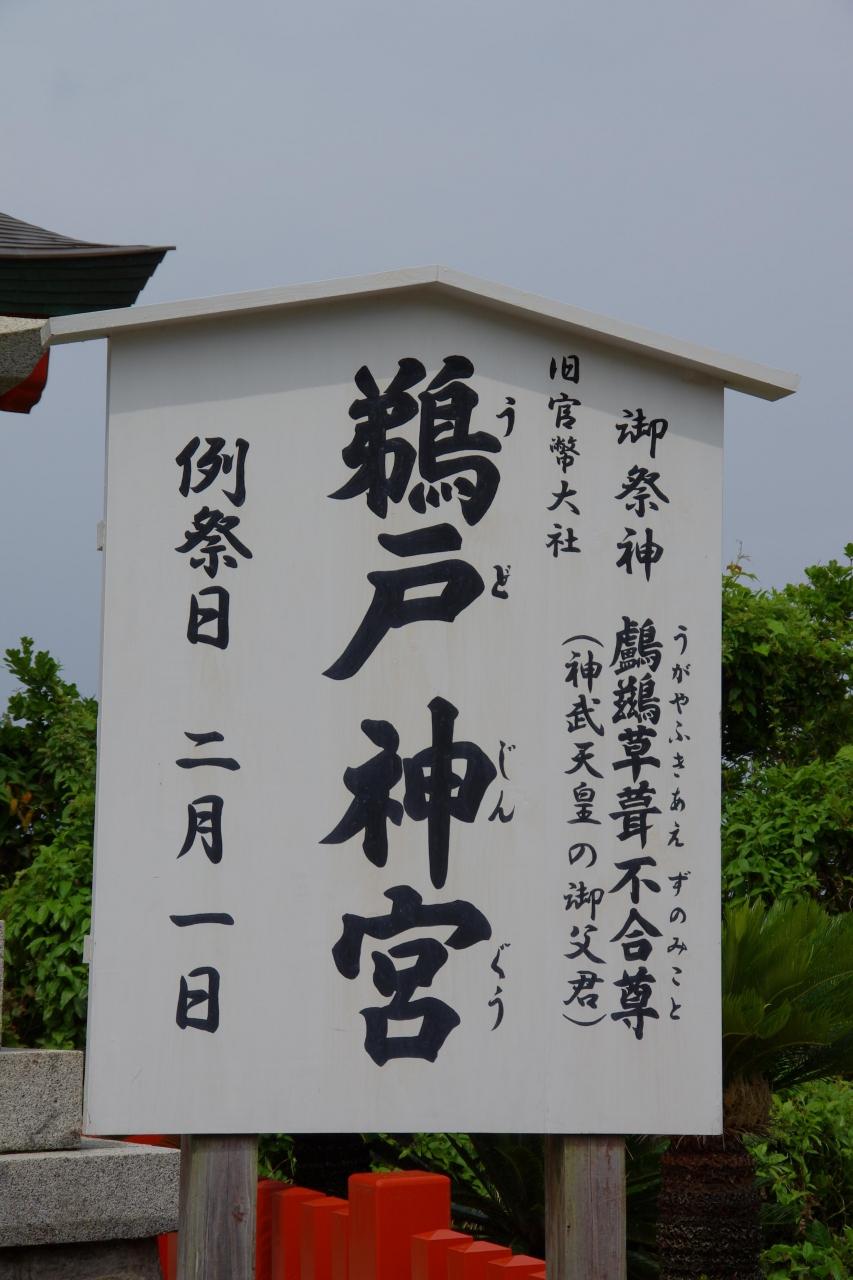 御祭神 鸕鷀草葺不合尊
うがやふきあえ ずのみこと
(神武天皇の御父君)
旧官幣大社
鵜戸神宮
う ど じん ぐう
例祭日 二月一日